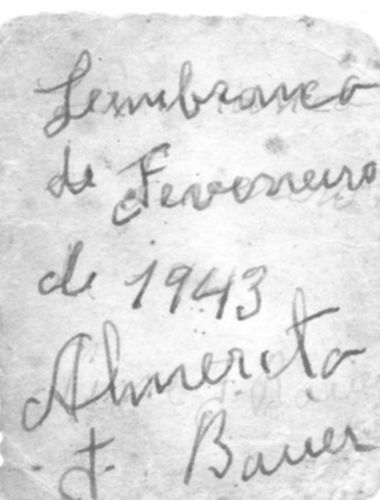 Lembranca
de Fevoreiro
de 1943
Almerita
F. Bauer